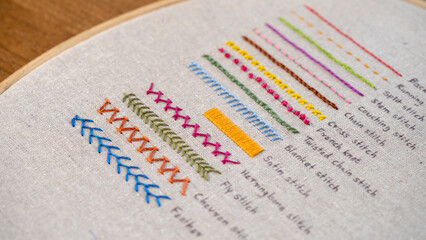 Running
Split stitch
Stem stitch
Couching stitch
Chain stitch
Cross stitch
French knot
Twisted chain stitch
Blanket stitch
Satin stitch
Herringbone stitch
Fly stitch
Chevron stit
Feather